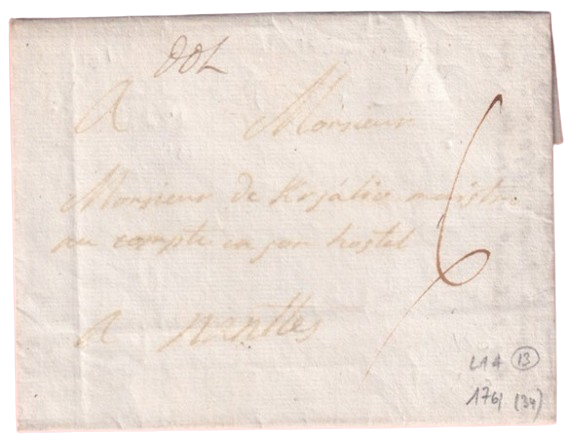 DOL
A Monsieur
Monsieur de Kersalio maistre
au compte en son hostel
6
a nanttes
L1A 13
1761 (34)